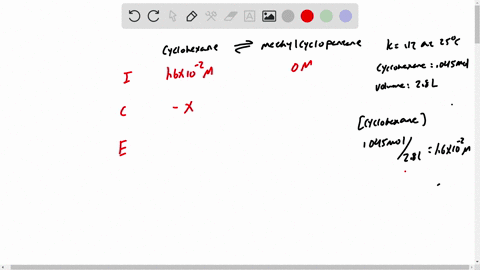 cyclohexane ⇌ methylcyclopentane
I 1.6x10⁻² M 0 M
C - x
E
k = .12 at 25°C
cyclohexane: .045mol
volume: 2.8L
[cyclohexane]
.045mol / 2.8L = 1.6x10⁻² M